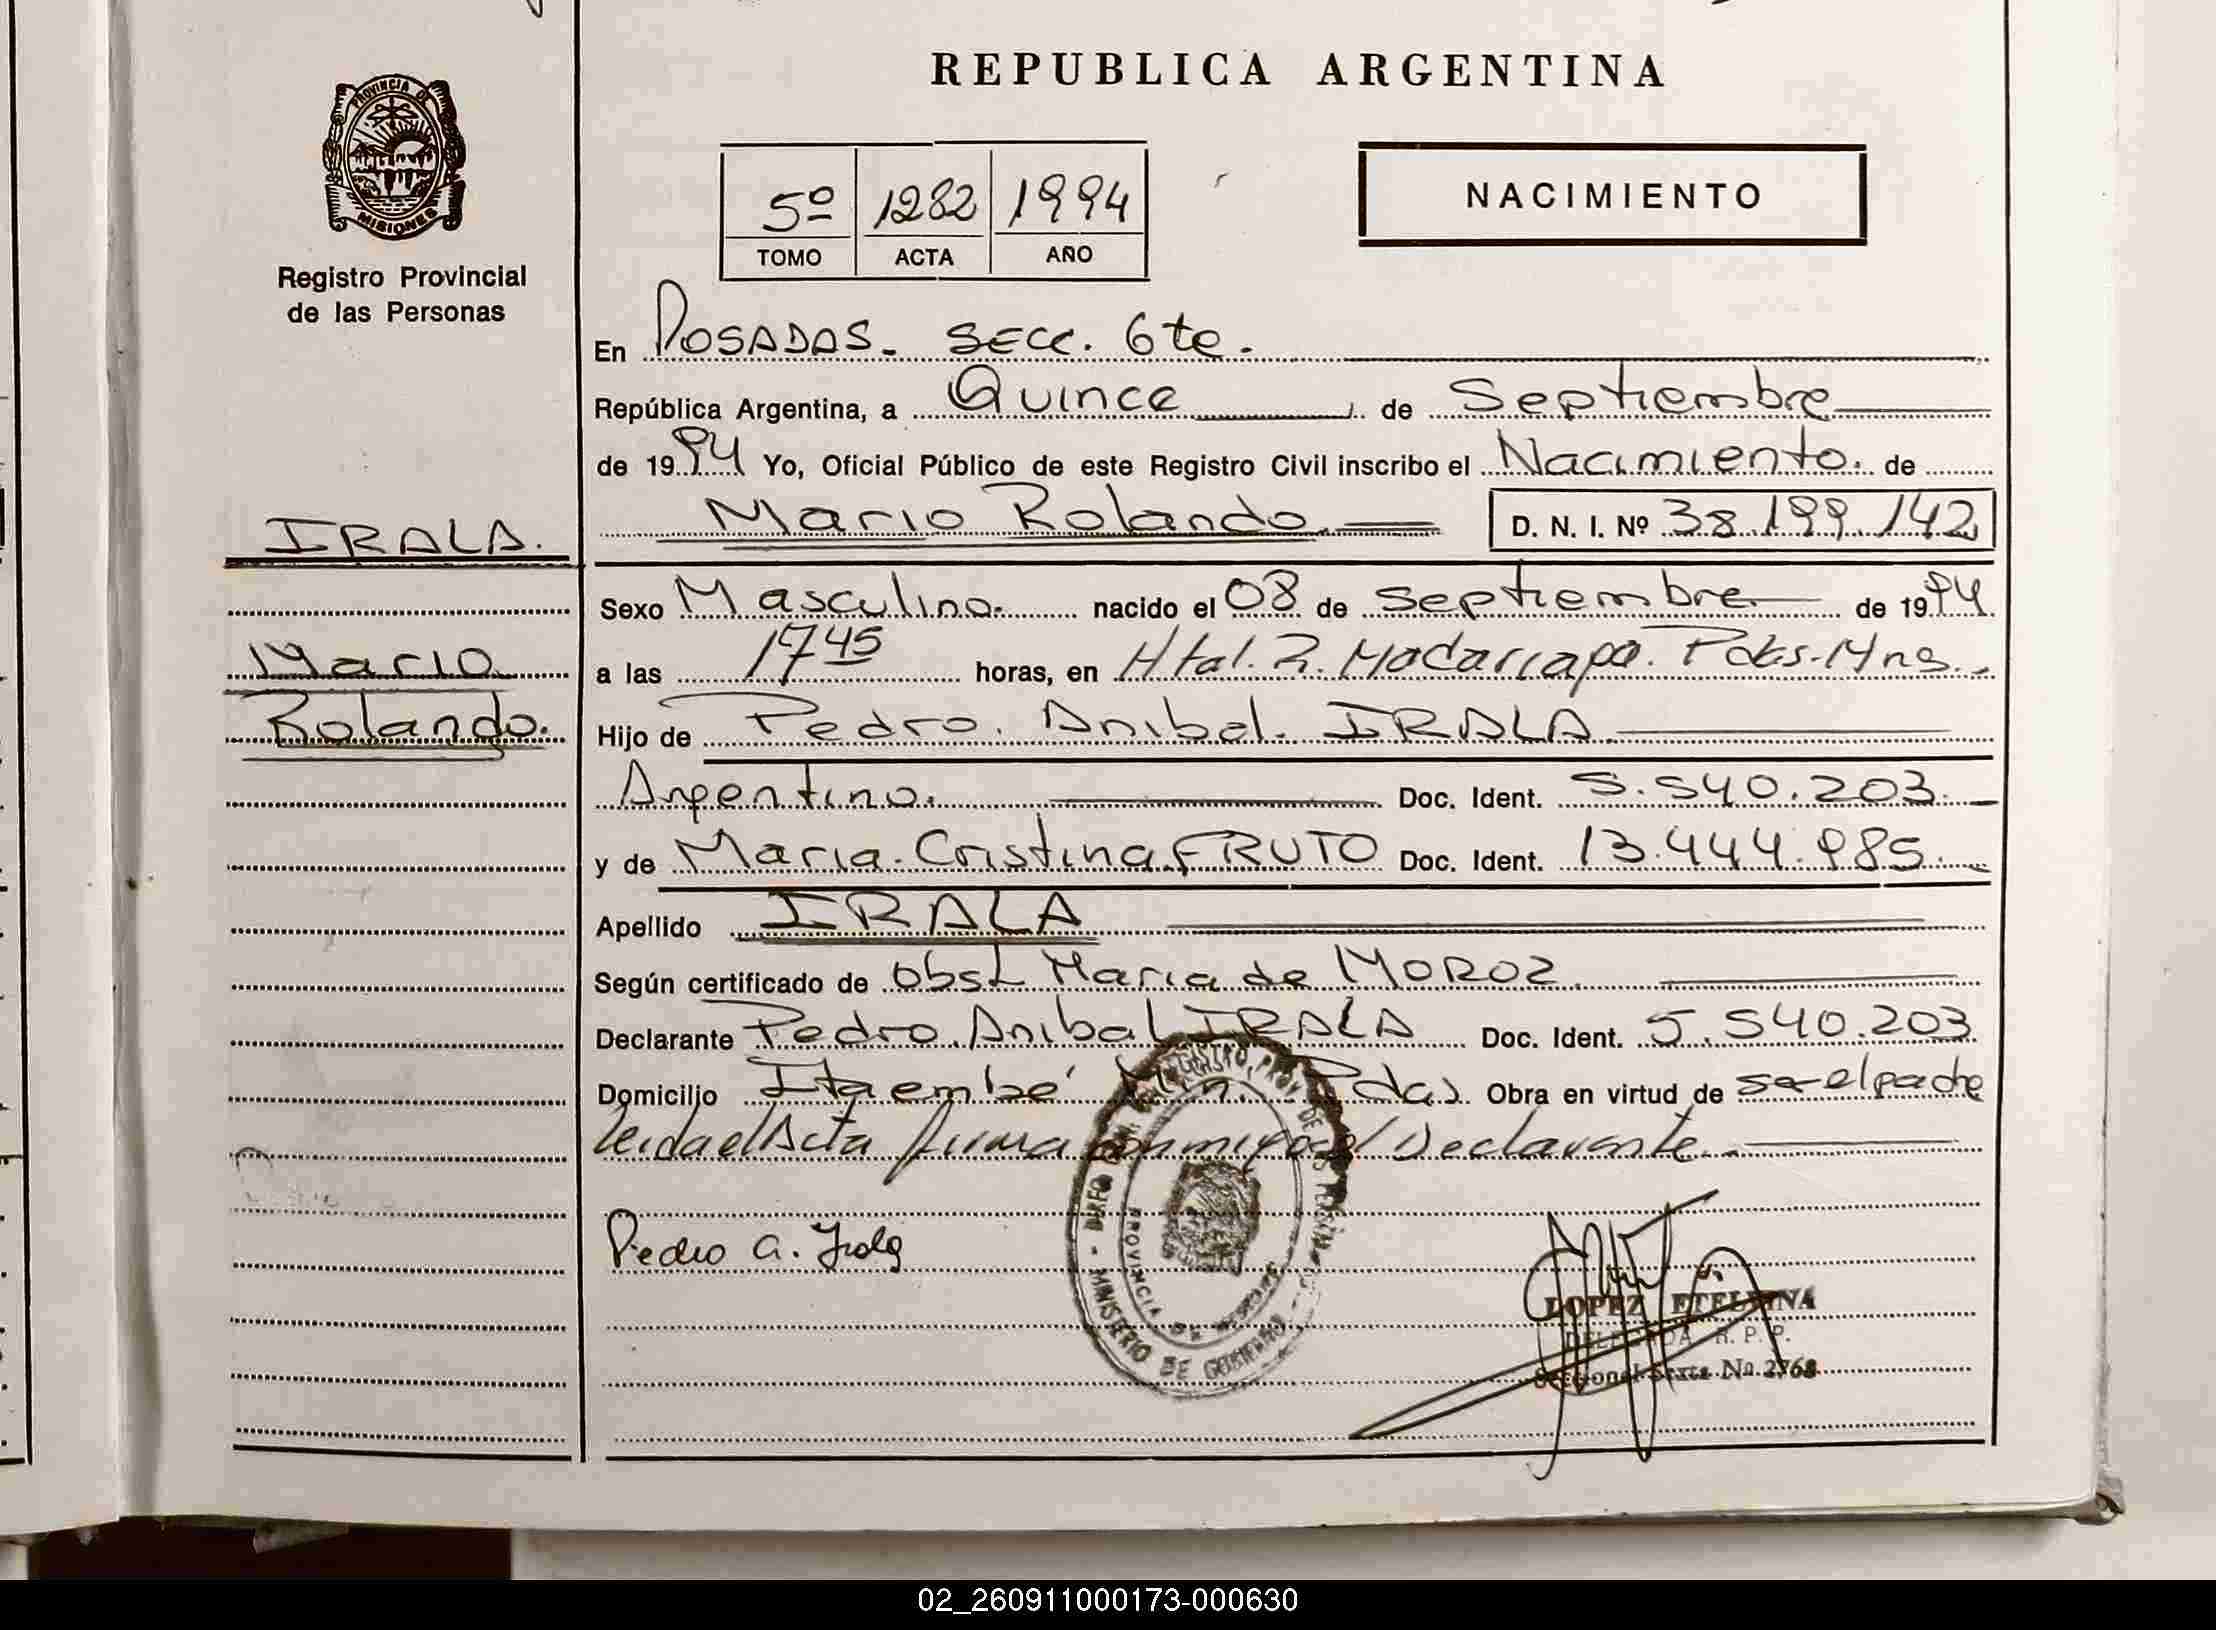 REPUBLICA ARGENTINA
PROVINCIA DE
MISIONES
Registro Provincial
de las Personas
5º 1282 1994
TOMO ACTA AÑO
NACIMIENTO
En POSADAS. SECC. 6te.
República Argentina, a Quince de Septiembre
de 1994 Yo, Oficial Público de este Registro Civil inscribo el Nacimiento. de
Mario Rolando. D. N. I. Nº 38.199.142
IRALA.
Mario
Rolando.
Sexo Masculino. nacido el 08 de Septiembre de 1994
a las 17 45 horas, en Htal. R. Madariaga. Pdas. Mns.
Hijo de Pedro. Anibal. IRALA
Argentino. Doc. Ident. 5.540.203.
y de Maria. Cristina FRUTO Doc. Ident. 13.444.985.
Apellido IRALA
Según certificado de Obst Maria de MOROZ.
Declarante Pedro. Anibal IRALA Doc. Ident. 5.540.203
Domicilio Itaembé Pdas. Obra en virtud de ser el padre
leida el Acta firma conmigo el Declarante.
Pedro A. Irala
MINISTERIO DE GOBIERNO
PROVINCIA DE MISIONES
LOPEZ ETELVINA
DELEGADA R. P. P.
Seccional Sexta Nº 2768
02_260911000173-000630